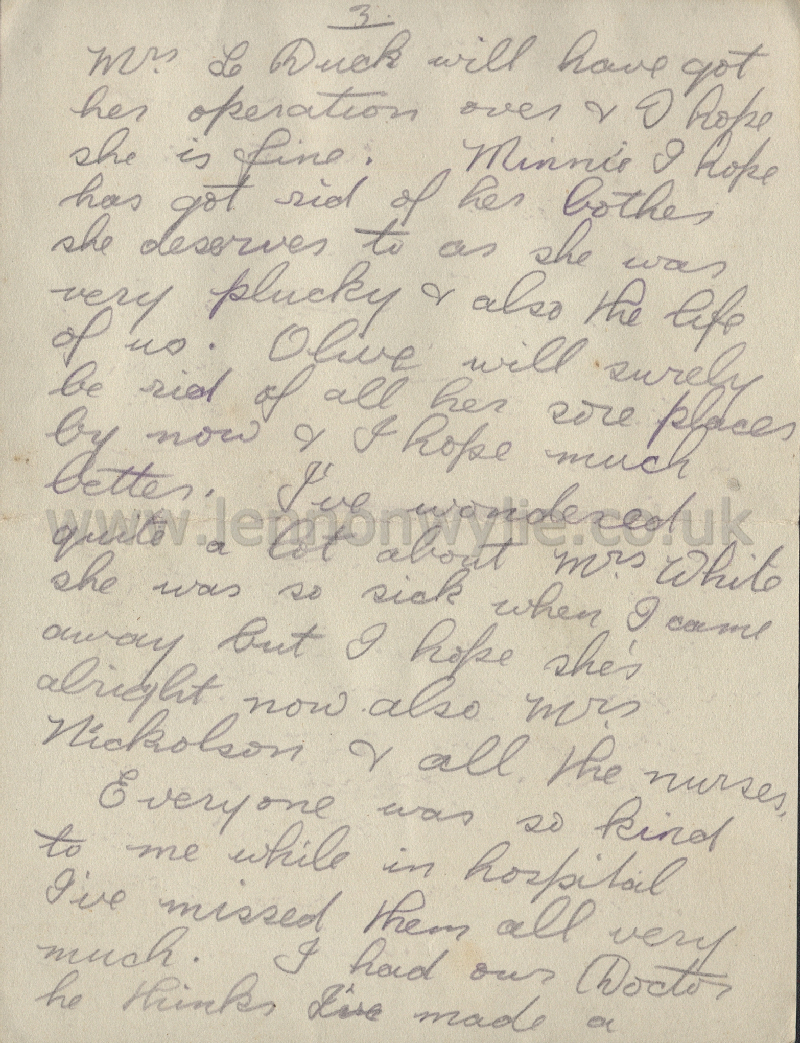 3.
Mrs Le Duck will have got
her operation over & I hope
she is fine. Minnie I hope
has got rid of her bother
she deserves to as she was
very plucky & also the life
of us. Olive will surely
be rid of all her sore places
by now & I hope much
better. I've wondered
www.lennonwylie.co.uk
quite a lot about Mrs White
she was so sick when I came
away but I hope she's
alright now also Mrs
Nickolson & all the nurses.
Everyone was so kind
to me while in hospital
I've missed them all very
much. I had our Doctor
he thinks I've made a